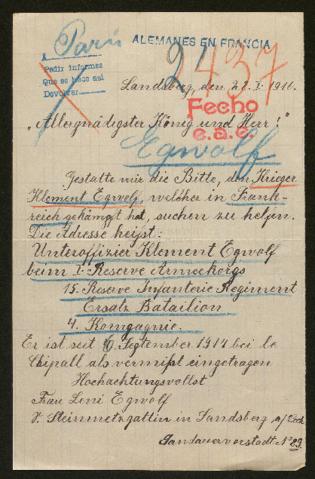 Paris
ALEMANES EN FRANCIA
A
Pedir informes
Que se hace así
Devolver
2437
Landsberg, den 1916.
Fecho
e.a.c.
„Allergnädigster König und Herr!"
Egwolf
Gestatte mir die Bitte, den Krieger
Klement Egwolf, welcher in Frank-
reich gekämpft hat, suchen zu helfen.
Die Adresse heißt:
Unteroffizier Klement Egwolf
beim I. Reserve Armeekorps
15. Reserve Infanterie Regiment
Ersatz Batailion
4. Kompagnie.
Er ist seit September 1914 bei
als vermißt eingetragen
Hochachtungsvollst
Frau Leni Egwolf
Steinmetzgattin in Landsberg a/Lech
Sandauervorstadt No